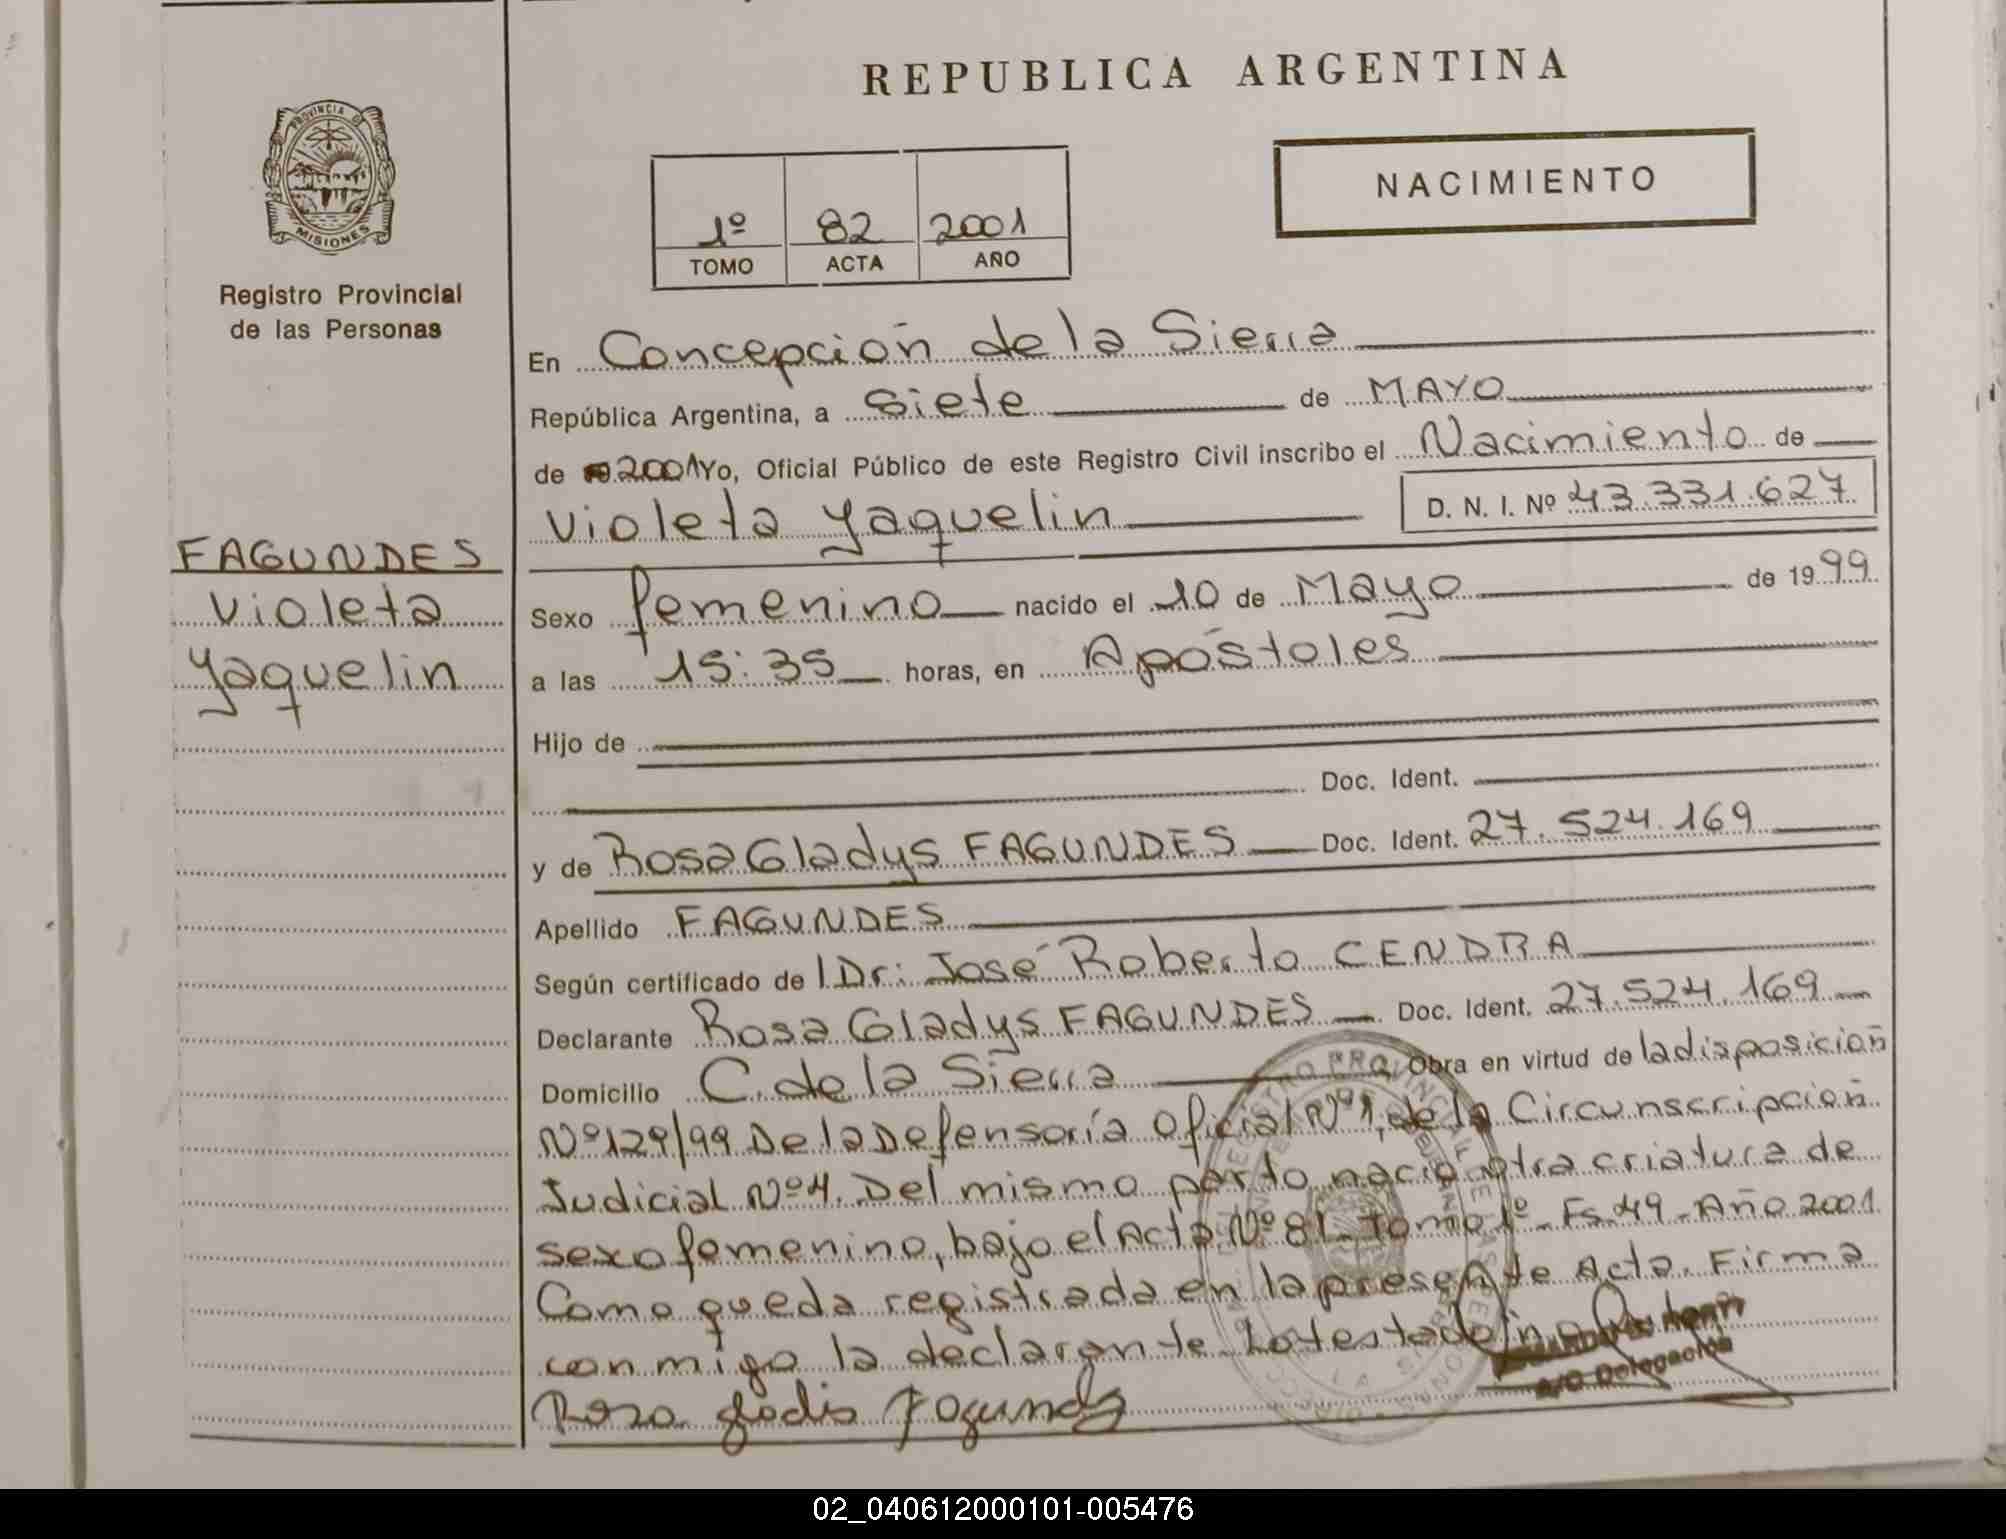 REPUBLICA ARGENTINA
PROVINCIA DE
MISIONES
Registro Provincial
de las Personas
NACIMIENTO
1º 82 2001
TOMO ACTA AÑO
En Concepción de la Sierra
República Argentina, a Siete de MAYO
de 2001 Yo, Oficial Público de este Registro Civil inscribo el Nacimiento de
Violeta Yaquelin D. N. I. Nº 43.331.627
FAGUNDES
Violeta
Yaquelin
Sexo femenino nacido el 10 de Mayo de 1999
a las 15:35 horas, en Apóstoles
Hijo de
Doc. Ident.
y de Rosa Gladys FAGUNDES Doc. Ident. 27.524.169
Apellido FAGUNDES
Según certificado de l Dr: José Roberto CENDRA
Declarante Rosa Gladys FAGUNDES Doc. Ident. 27.524.169
Domicilio C. de la Sierra Obra en virtud de la disposición
Nº 129/99 De la Defensoría Oficial Nº1, de la Circunscripción
Judicial Nº4. Del mismo parto nació otra criatura de
sexo femenino, bajo el Acta Nº 81 Tomo 1º Fs 49 - Año 2001
Como queda registrada en la presente Acta. Firma
conmigo la declarante. Lo testado
A/C Delegación
Rosa Gladis Fagundes
02_040612000101-005476